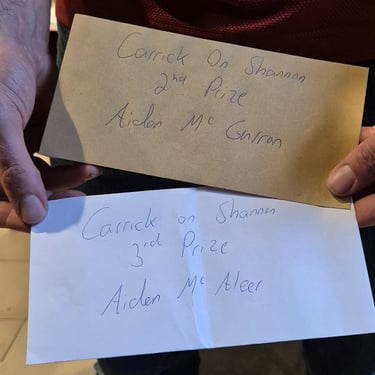 Carrick On Shannon
2nd Prize
Aiden Mc Gurran
Carrick on Shannon
3rd Prize
Aiden Mc Aleer